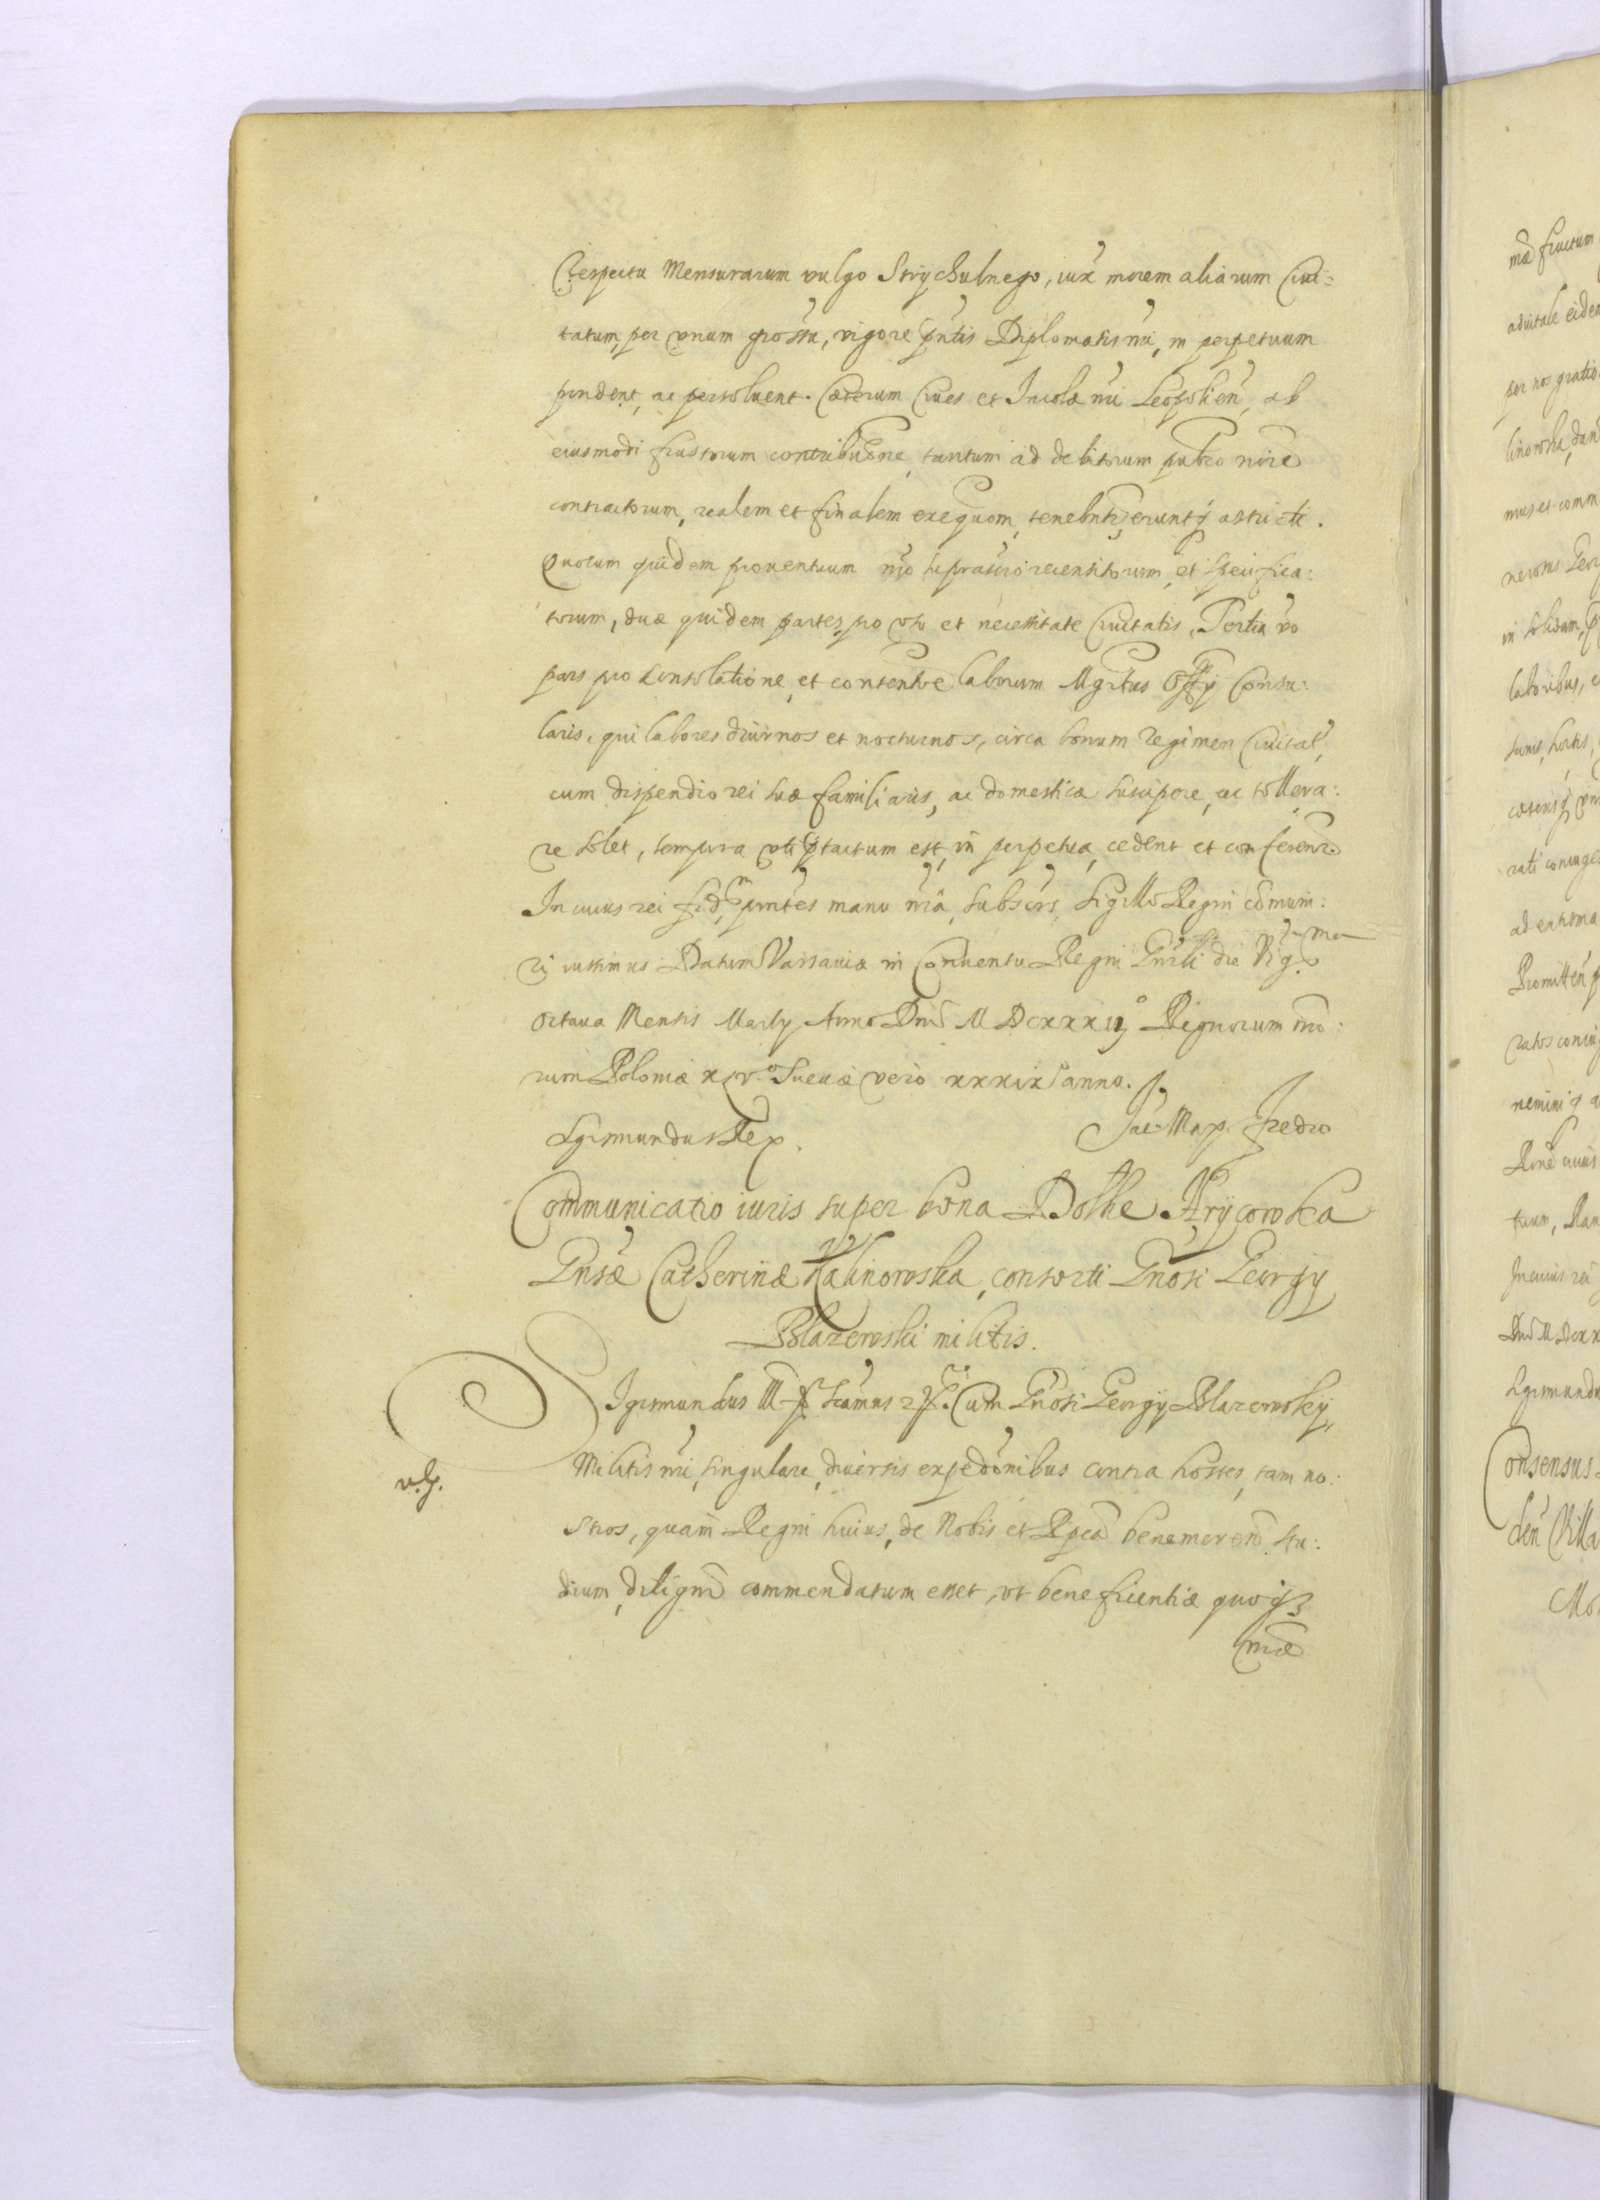 Respectu Mensurarum vulgo Strychulnego, iux morem aliarum Ciui:
tatum, per vnum grossu, vigore pntis Diplomatis nri, in perpetuum
pendent, ac persoluent. Cæterum Ciues et Incolæ nri Leopolien, ab
eiusmodi frustorum contributne, tantum ad debitorum publco noie
contractorum, realem et finalem exequom, tenebntr, eruntq astricti.
Quorum quidem prouentuum mo suprascro recensitorum, et specifica:
torum, duæ quidem partes, pro vsu et necessitate Ciuitatis, Tertia vo
pars pro consolatione, et contentne laborum Mgrtus Offy Consu:
laris, qui labores diurnos et nocturnos, circa bonum regimen Ciuitat,
cum dispendio rei suæ familiaris, ac domesticæ suscipere, ac tollera:
re solet, tempora vti ptactum est, in perpetua, cedent et conferentr
In cuius rei fidem pntes manu nra subscrs, sigillo Regni comuni:
ri iussimus. Datum Varsauiæ in Conuentu Regni Gnrli die Vigma
Octaua Mensis Marty Anno Dni MDCXXXIIo Regnorum nro:
rum Poloniæ XLVo Sueciæ vero XXXIX anno.
Sigismundus Rex. Jac: Max. Fredro
Communicatio iuris super bona Dolhe Arycowska
Gnsæ Catherinæ Kalinowska, consorti Gnosi Georgy
Blazewski militis.
Sigismundus III etc. Cum Gnosi Georgy Blazewsky,
Militis nri, singulare, diuersis expedonibus contra hostes, tam no:
stros, quam Regni huius, de Nobis et Rpca benemeren stu:
v.g.
dium, diligen commendatum esset, vt beneficentiæ quoq
nræ